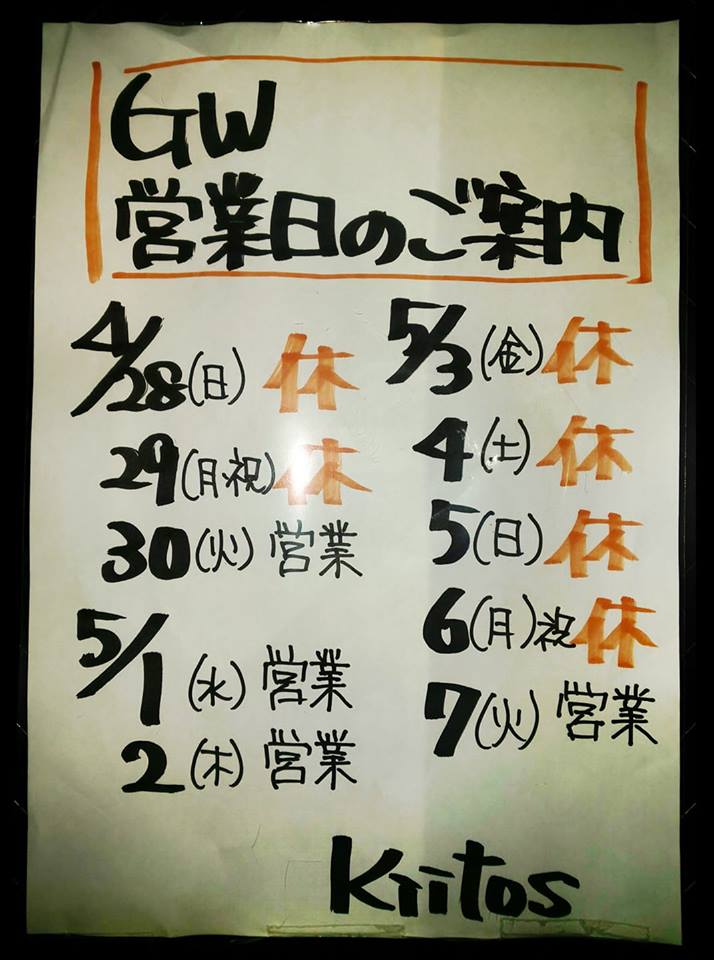 GW
営業日のご案内
4/28(日) 休
29(月・祝)休
30(火) 営業
5/1(水) 営業
2(木) 営業
5/3(金)休
4(土)休
5(日)休
6(月)祝休
7(火) 営業
Kiitos